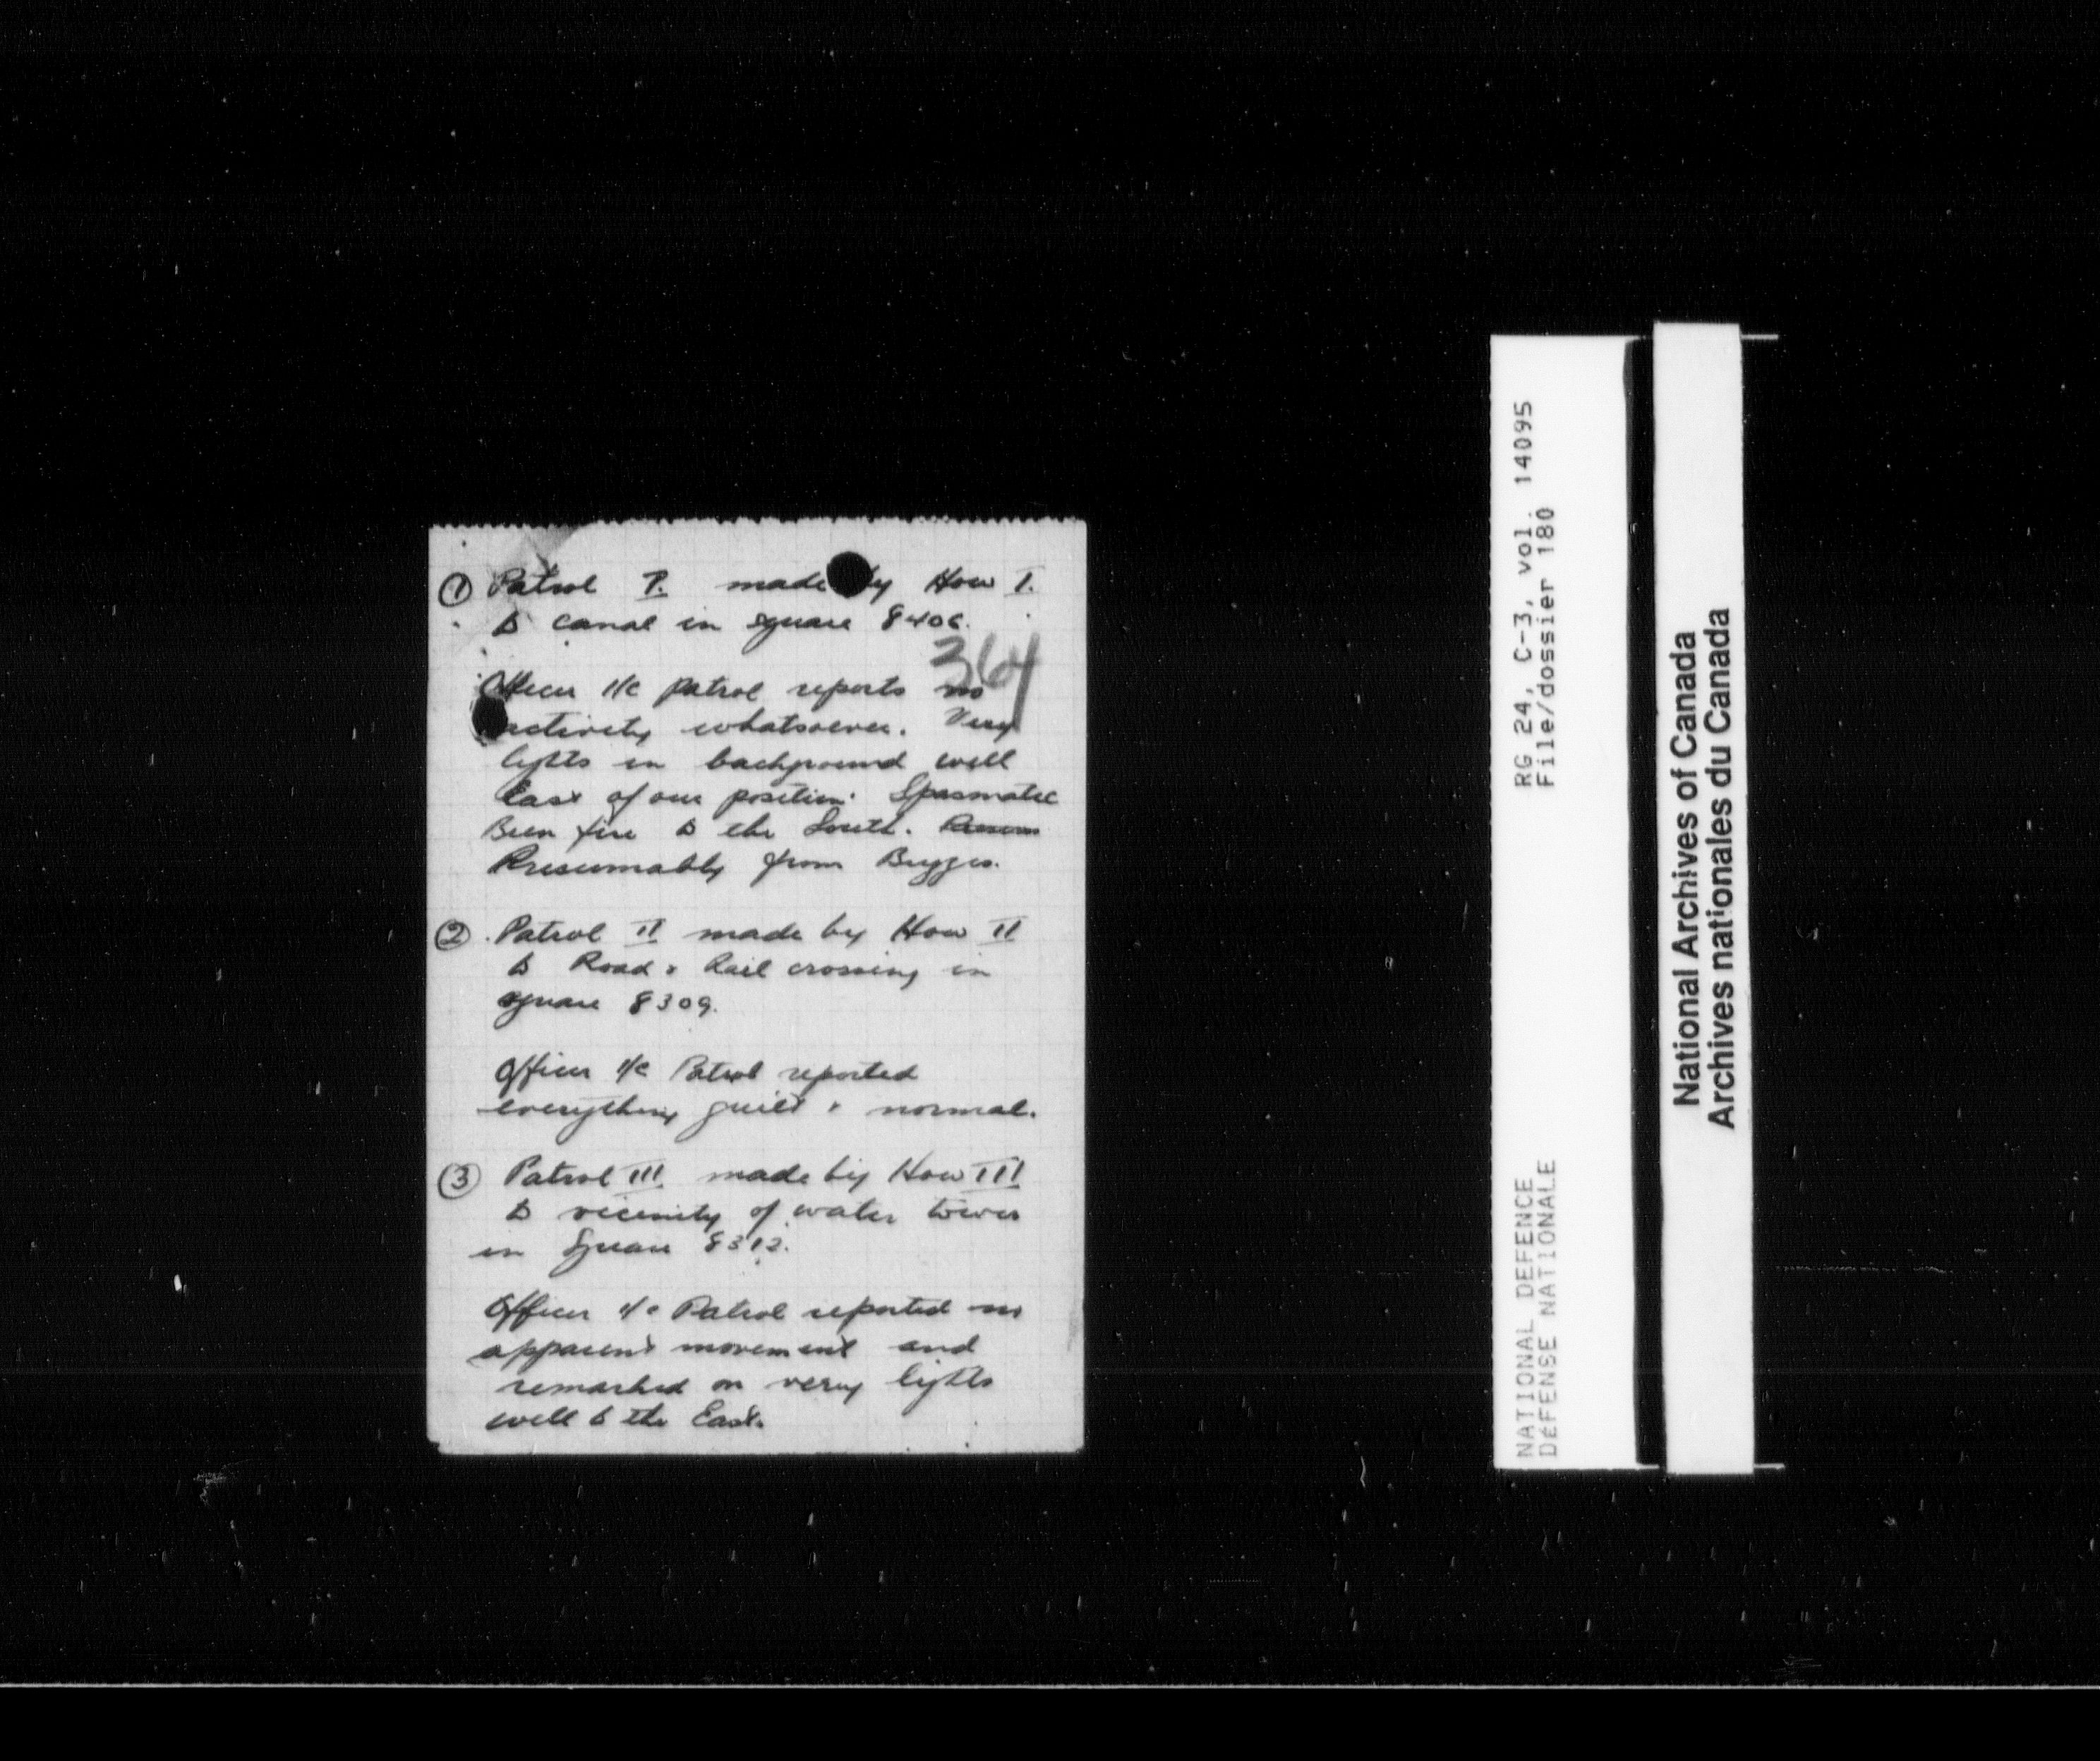 ① Patrol I. made by How I.
to canal in square 8406.
364
Officer i/c patrol reports no
activity whatsoever. Very
lights in background well
East of our position. Spasmatic
Bren fire to the South.
Presumably from Brugges.
② Patrol II made by How II
to Road & Rail crossing in
square 8309.
Officer i/c Patrol reported
everything quiet & normal.
③ Patrol III made by How III
to vicinity of water tower
in Square 8312.
Officer i/c Patrol reported no
apparent movement and
remarked on very lights
well to the East.
RG 24, C-3, vol. 14095
File/dossier 180
NATIONAL DEFENCE
DÉFENSE NATIONALE
National Archives of Canada
Archives nationales du Canada